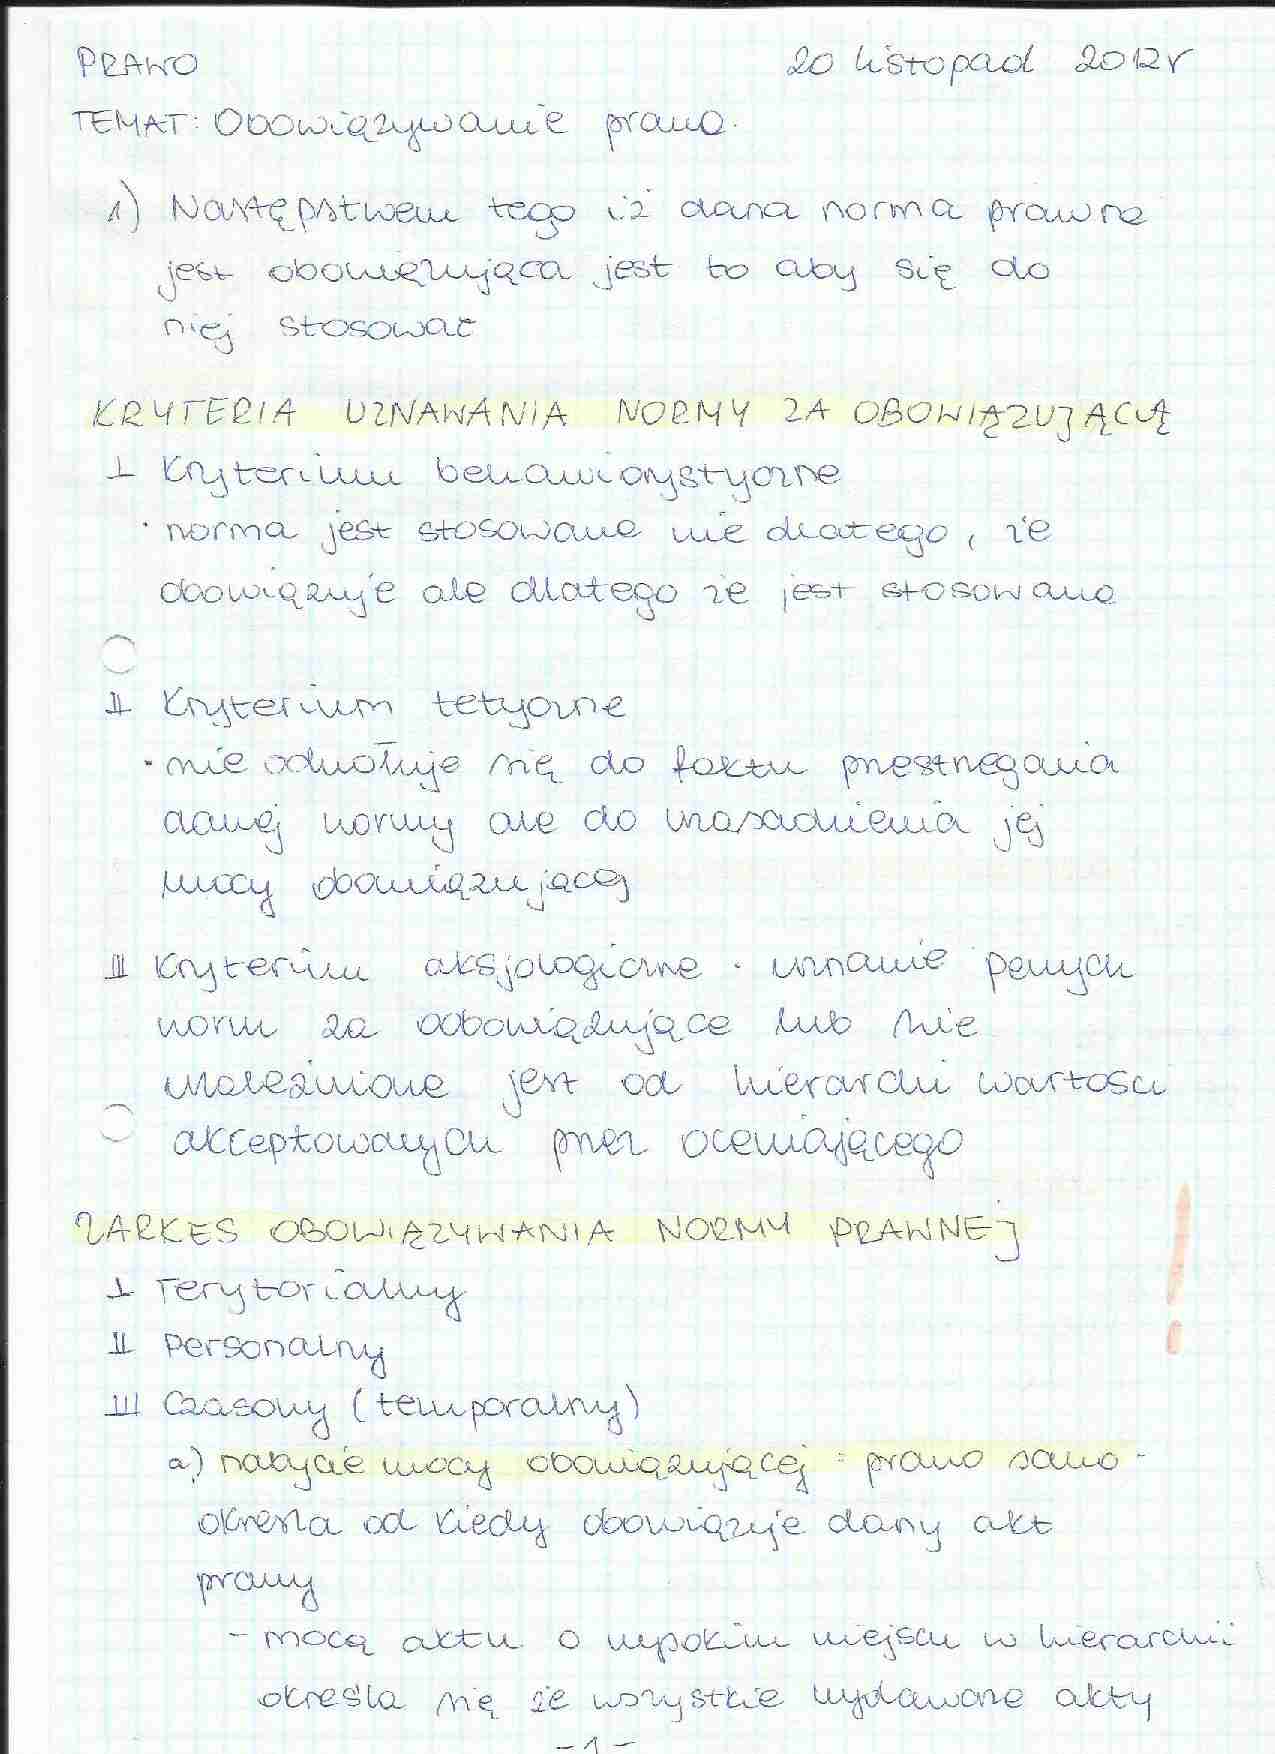 PRAWO 20 listopad 2012r
TEMAT: Obowiązywanie prawa.
1) Następstwem tego iż dana norma prawna
jest obowiązująca jest to aby się do
niej stosować
KRYTERIA UZNAWANIA NORMY ZA OBOWIĄZUJĄCĄ
I Kryterium behawiorystyczne
· norma jest stosowana nie dlatego, że
obowiązuje ale dlatego że jest stosowana
II Kryterium tetyczne
· nie odwołuje się do faktu przestrzegania
danej normy ale do uzasadnienia jej
mocy obowiązującej
III Kryterium aksjologiczne · uznanie pewnych
norm za oobowiązujące lub nie
uzależnione jest od hierarchi wartości
akceptowanych przez oceniającego
ZARKES OBOWIĄZYWANIA NORMY PRAWNEJ
I Terytorialny
II Personalny
III Czasowy (temporalny)
a) nabycie mocy obowiązującej : prawo samo -
określa od kiedy obowiązuje dany akt
prawny
- mocą aktu o wysokim miejscu w hierarchii
określa się że wszystkie wydawane akty
-1-